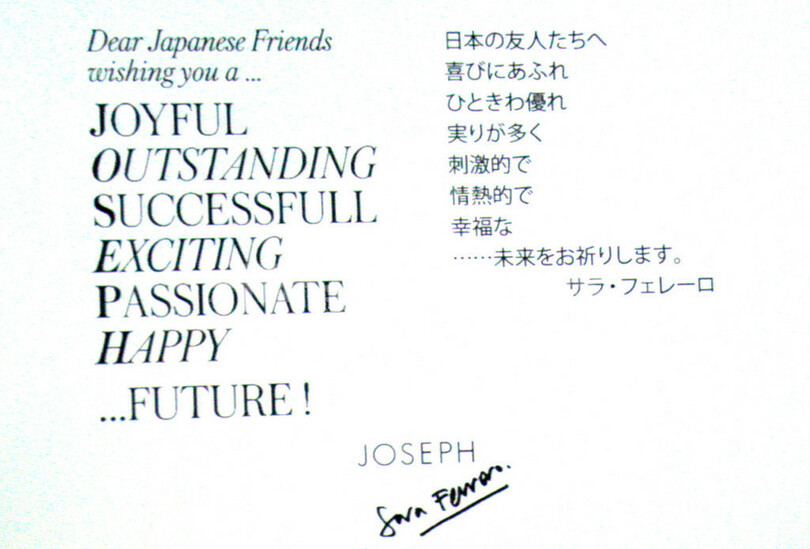 Dear Japanese Friends
wishing you a ...
JOYFUL
OUTSTANDING
SUCCESSFULL
EXCITING
PASSIONATE
HAPPY
...FUTURE !
日本の友人たちへ
喜びにあふれ
ひときわ優れ
実りが多く
刺激的で
情熱的で
幸福な
……未来をお祈りします。
サラ・フェレーロ
JOSEPH
Sara Ferrero.